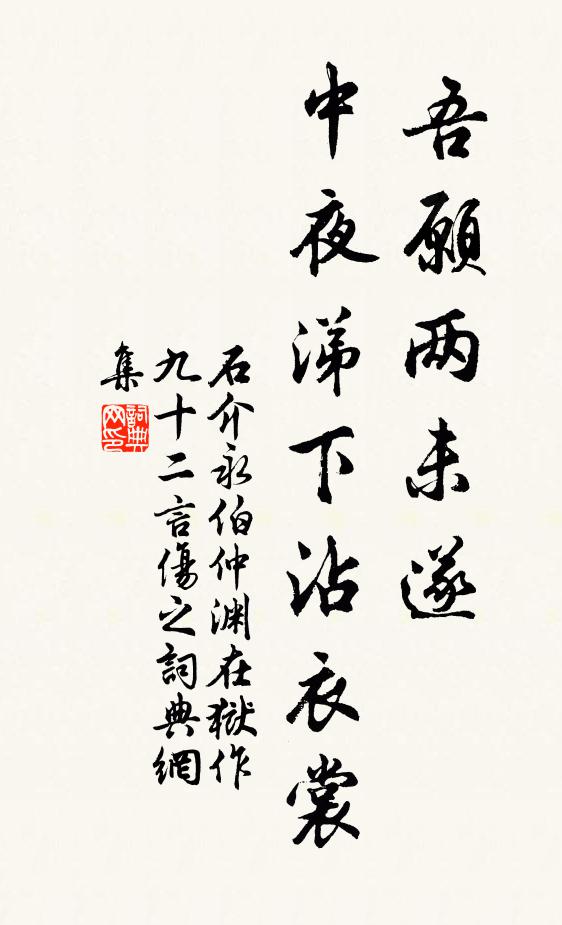 吾願两未遂
中夜涕下沾衣裳
石介永伯仲渊在獄作
九十二言傷之詞典網
集
詞典网印